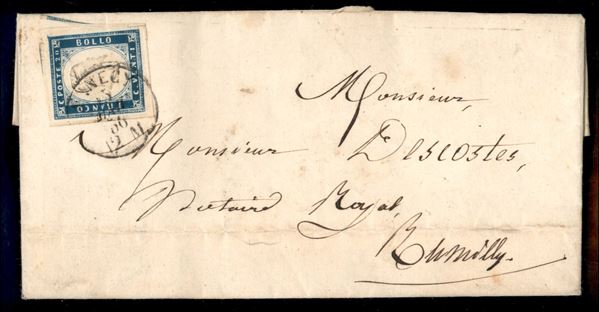 BOLLO
C. POSTE 20
C. VENTI
FRANCO
ANNECY
60
12 M
Monsieur,
Monsieur Descostes,
Notaire Royal,
Rumilly.